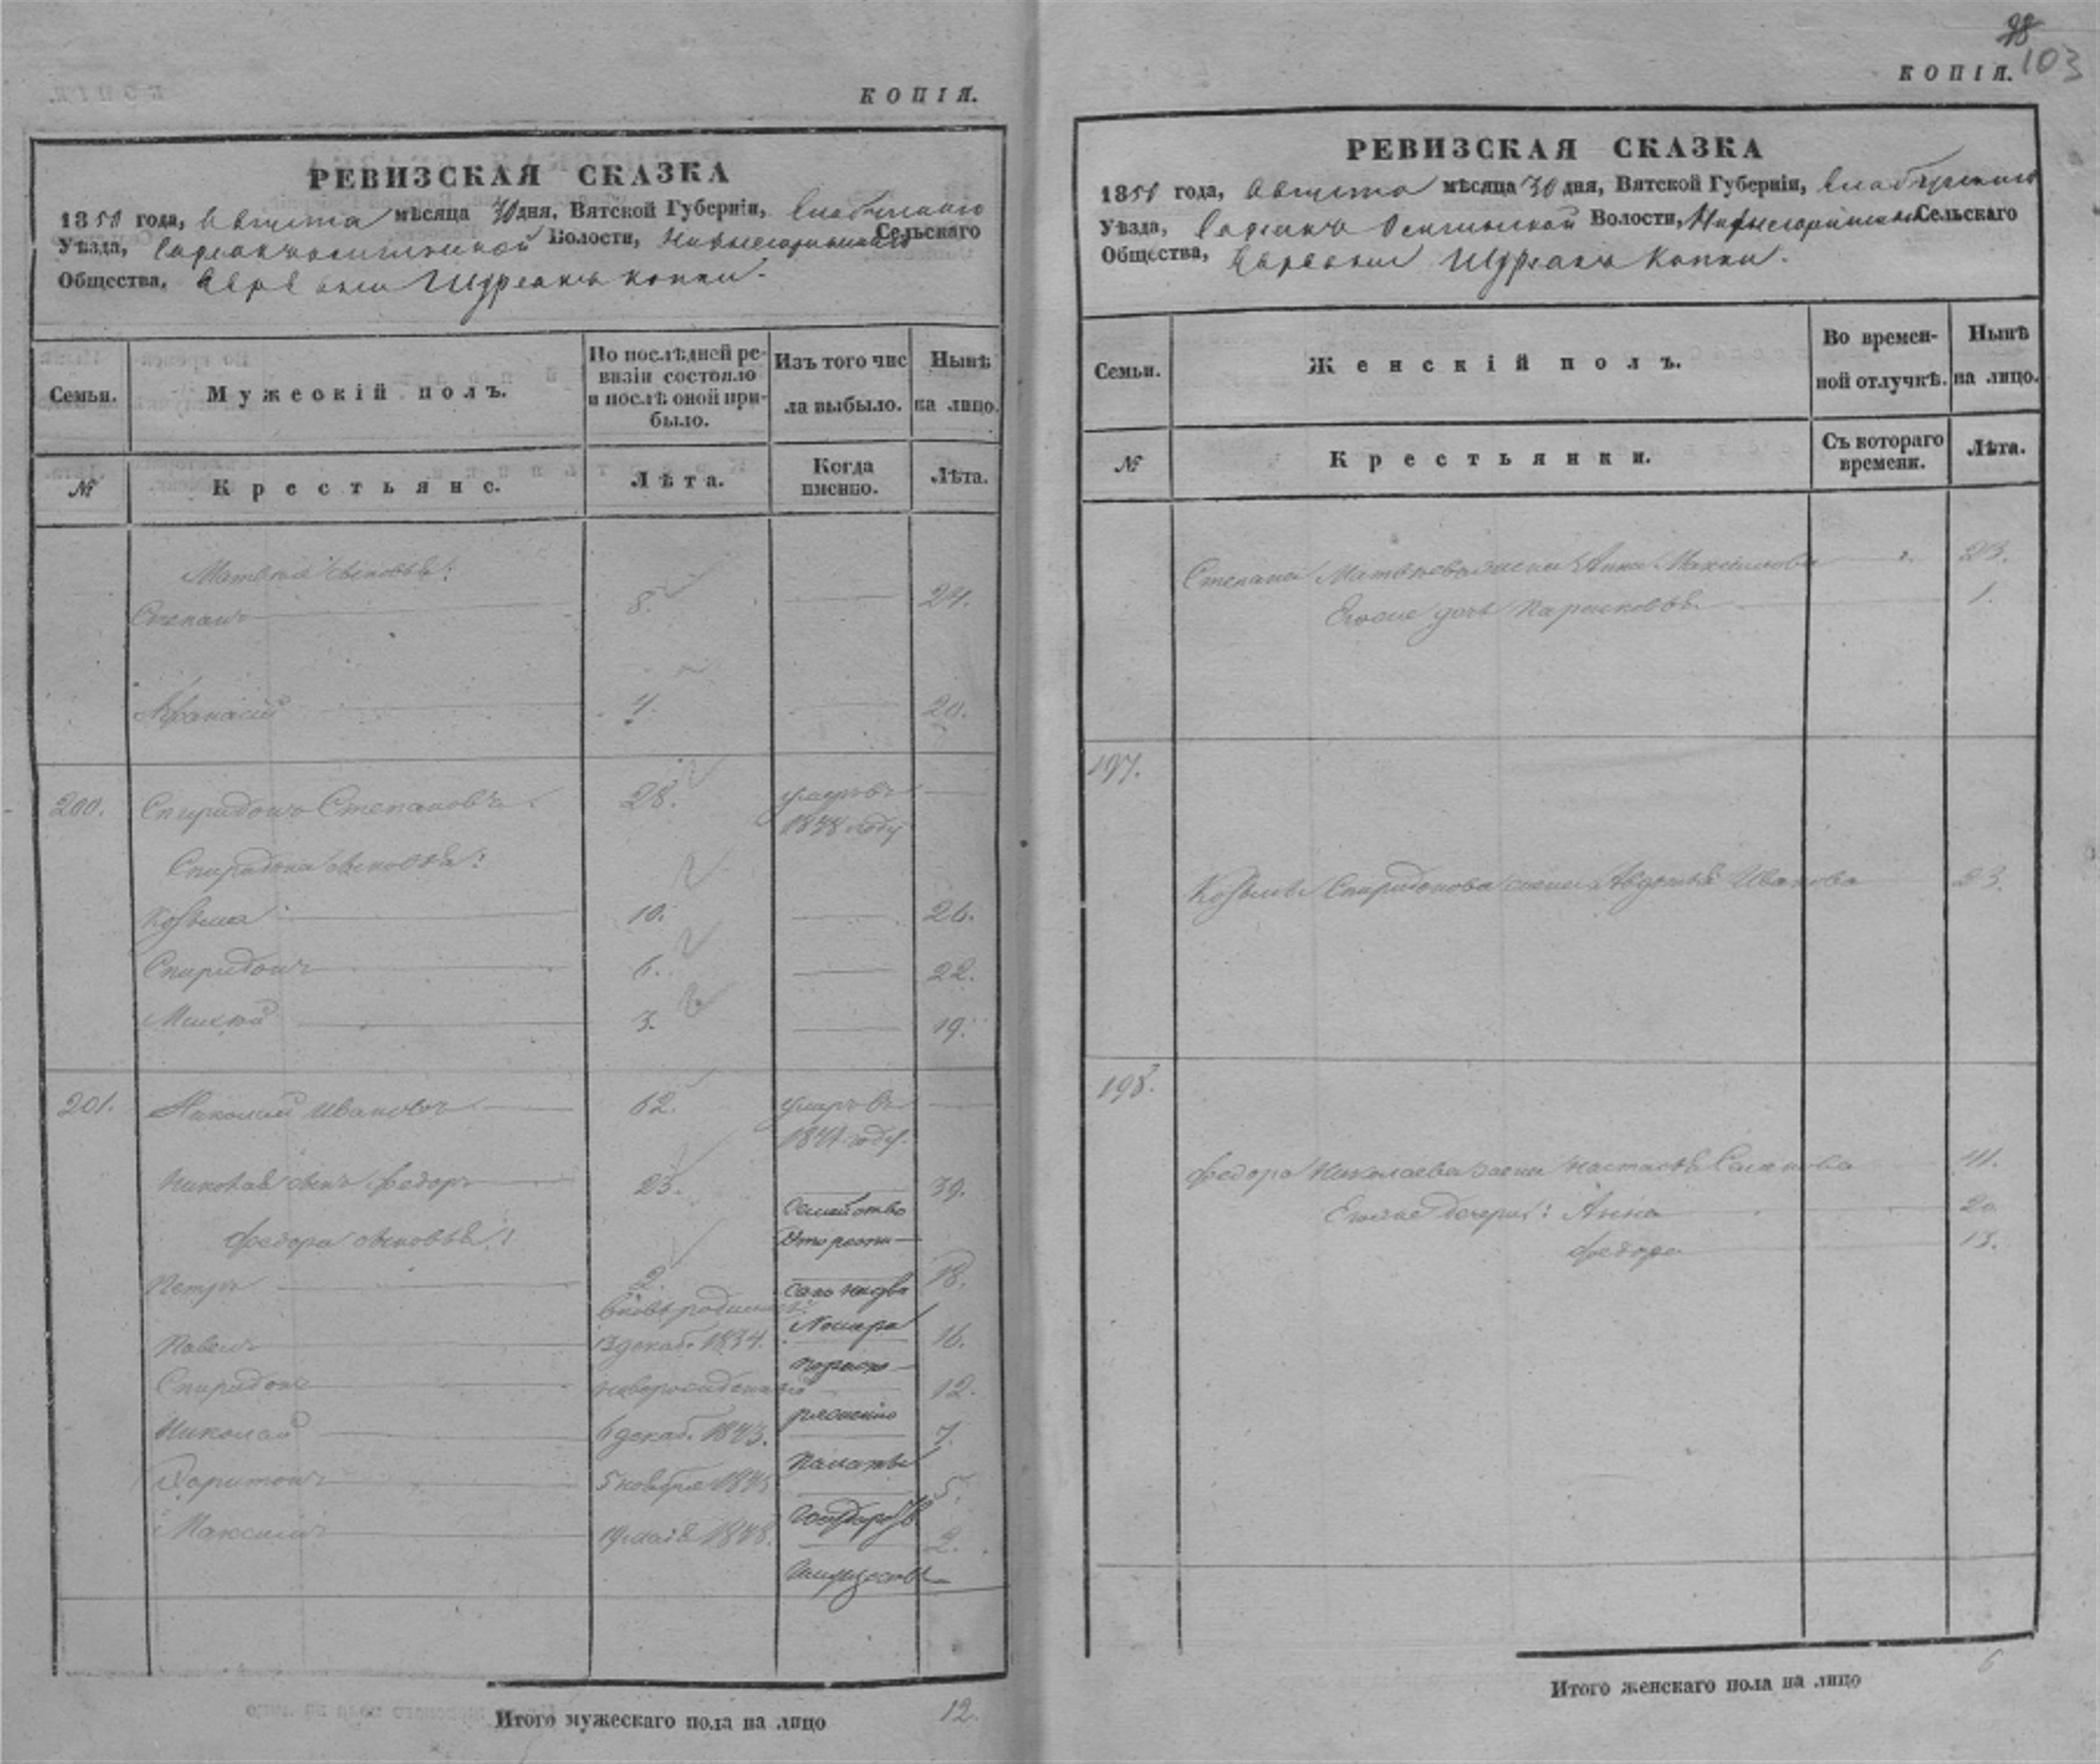 КОПІЯ.
РЕВИЗСКАЯ СКАЗКА
1850 года, Августа мѣсяца 30 дня, Вятской Губерніи, Елабужскаго
Уѣзда, Волости, Сельскаго
Общества, Деревни
Семьи.
Мужескій полъ.
По послѣдней ре-
визіи состояло
и послѣ оной при-
было.
Изъ того чис
ла выбыло.
Нынѣ
на лицо.
№
Крестьяне.
Лѣта.
Когда
именно.
Лѣта.
Матвея сыновья:
Степанъ 8. 24.
Афанасій 4. 20.
200. Спиридонъ Степановъ 28. умеръ въ
1838 году
Спиридона сыновья:
Козьма 10. 26.
Спиридонъ 6. 22.
Михей 3. 19.
201. Николай Ивановъ 62. умеръ въ
1841 году.
Николая сынъ Федоръ 23. 39.
Семейство
Федора сыновья:
Петръ 2. 18.
вновь рожденные:
Павелъ 13 декаб. 1834. 16.
Спиридонъ 12.
Николай 6 декаб. 1843. 7.
Палаты
Харитонъ 5 ноября 1845 5.
Максимъ 19 мая 1848. 2.
Имуществъ
Итого мужескаго пола на лицо 12.
28
103
КОПІЯ.
РЕВИЗСКАЯ СКАЗКА
1850 года, Августа мѣсяца 30 дня, Вятской Губерніи, Елабужскаго
Уѣзда, Волости, Сельскаго
Общества, Деревни
Семьи.
Женскій полъ.
Во времен-
ной отлучкѣ.
Нынѣ
на лицо.
№
Крестьянки.
Съ котораго
времени.
Лѣта.
Степана Матвеева жена Анна Максимова 23.
Егоже дочь Парасковья 1.
197.
Козьмы Спиридонова жена Авдотья Иванова 23.
198.
Федора Николаева жена Настасья 41.
Егоже дочери: Анна 20
Федора 13.
Итого женскаго пола на лицо 6